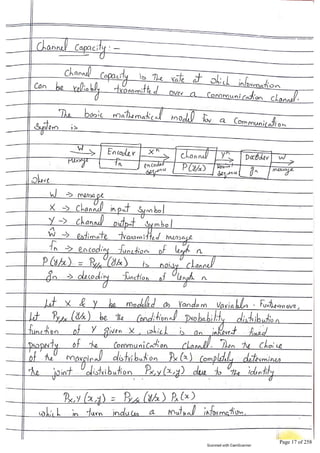 Channel Capacity :-
Channel capacity is the rate at which information
can be reliably transmitted over a communication channel.
The basic mathematical model for a communication
system is
W Encoder Xⁿ Channel Yⁿ Decoder Ŵ
message fn encoded sequence P(y/x) sequence gn message
where
W → message
X → Channel input symbol
Y → Channel output symbol
Ŵ → estimate transmitted message
fn → encoding function of length n
P(y/x) = Py/x (y/x) is noisy channel
gn → decoding function of length n
Let X & Y be modeled as random variables. Furthermore,
Let Py/x (y/x) be the conditional probability distribution
function of Y given X, which is an inherent fixed
property of the communication channel. Then the choice
of the marginal distribution Px(x) completely determines
the joint distribution Px,y (x,y) due to the identity
Px,y (x,y) = Py/x (y/x) Px(x)
which in turn induces a mutual information.
Scanned with CamScanner
Page 17 of 258